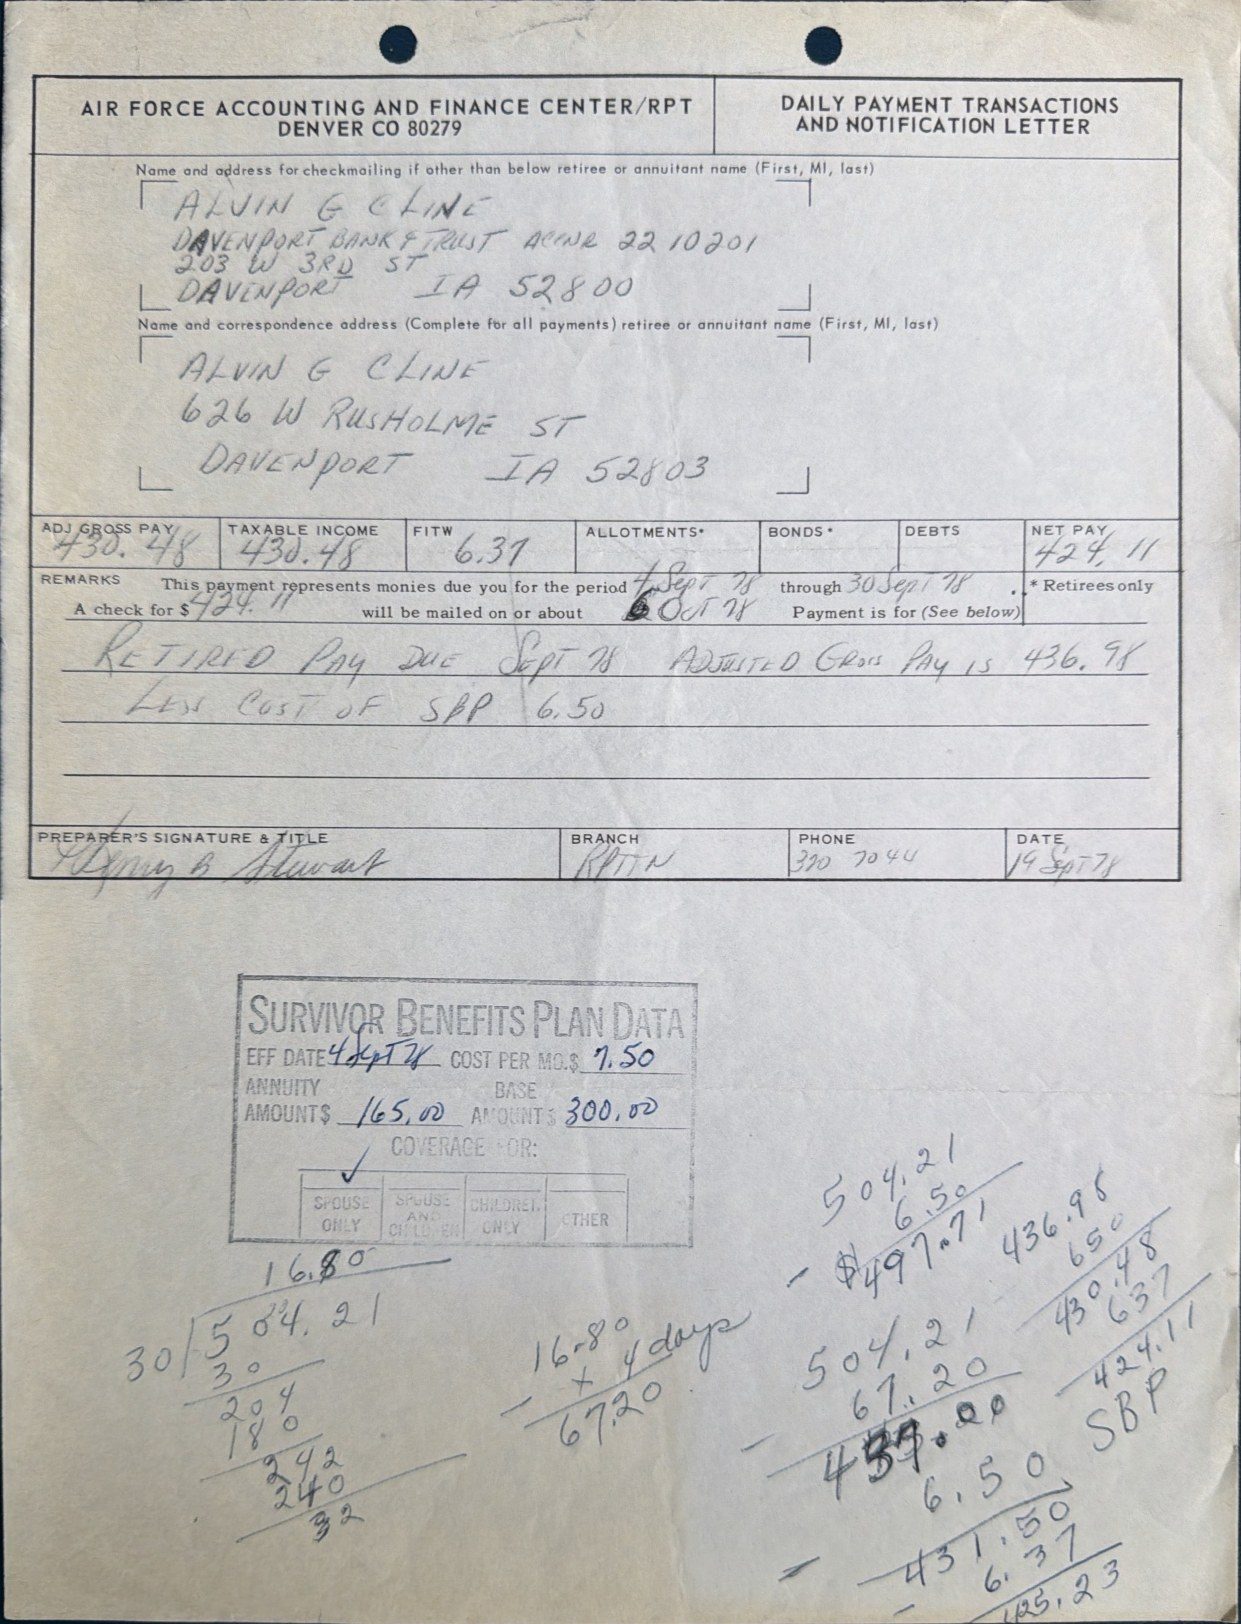 AIR FORCE ACCOUNTING AND FINANCE CENTER/RPT
DENVER CO 80279
DAILY PAYMENT TRANSACTIONS
AND NOTIFICATION LETTER
Name and address for checkmailing if other than below retiree or annuitant name (First, MI, last)
ALVIN G CLINE
DAVENPORT BANK & TRUST ACCNR 22 10201
203 W 3RD ST
DAVENPORT IA 52800
Name and correspondence address (Complete for all payments) retiree or annuitant name (First, MI, last)
ALVIN G CLINE
626 W RUSHOLME ST
DAVENPORT IA 52803
ADJ GROSS PAY TAXABLE INCOME FITW ALLOTMENTS* BONDS* DEBTS NET PAY
430.48 430.48 6.37 424.11
REMARKS This payment represents monies due you for the period 4 Sept 78 through 30 Sept 78 . * Retirees only
A check for $ 424.11 will be mailed on or about 6 Oct 78 Payment is for (See below)
RETIRED PAY DUE SEPT 78 ADJUSTED GROSS PAY IS 436.98
LESS COST OF SBP 6.50
PREPARER'S SIGNATURE & TITLE BRANCH PHONE DATE
B Stewart 370 7044 19 Sept 78
SURVIVOR BENEFITS PLAN DATA
EFF DATE 4 Sept 78 COST PER MO.$ 7.50
ANNUITY BASE
AMOUNT$ 165.00 AMOUNT$ 300.00
COVERAGE FOR:
SPOUSE ONLY
SPOUSE AND CHILDREN
CHILDREN ONLY
OTHER
16.80
30 504.21
30
204
180
242
240
32
16.80
x 4 days
67.20
504.21
6.50
- $497.71
436.98
650
430.48
637
424.11
SBP
504.21
67.20
- 437.00
6.50
- 431.50
6.37
- 425.23